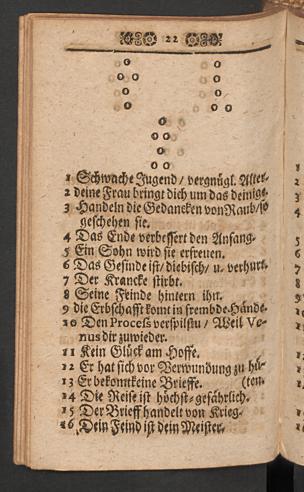 22
1 Schwache Jugend / vergnügl. Alter.
2 deine Frau bringt dich um das deinige.
3 Handeln die Gedancken von Raub / so
geschehen sie.
4 Das Ende verbessert den Anfang.
5 Ein Sohn wird sie erfreuen.
6 Das Gesinde ist / diebisch / u. verhurt.
7 Der Krancke stirbt.
8 Seine Feinde hintern ihn.
9 die Erbschafft komt in frembde Hände.
10 Den Proceß verspilstu / Weil Ve-
nus dir zuwieder.
11 Kein Glück am Hoffe.
12 Er hat sich vor Verwundung zu hü-
13 Er bekomt keine Brieffe. (ten.
14 Die Reise ist höchst-gefährlich.
15 Der Brieff handelt von Krieg.
16 Dein Feind ist dein Meister.